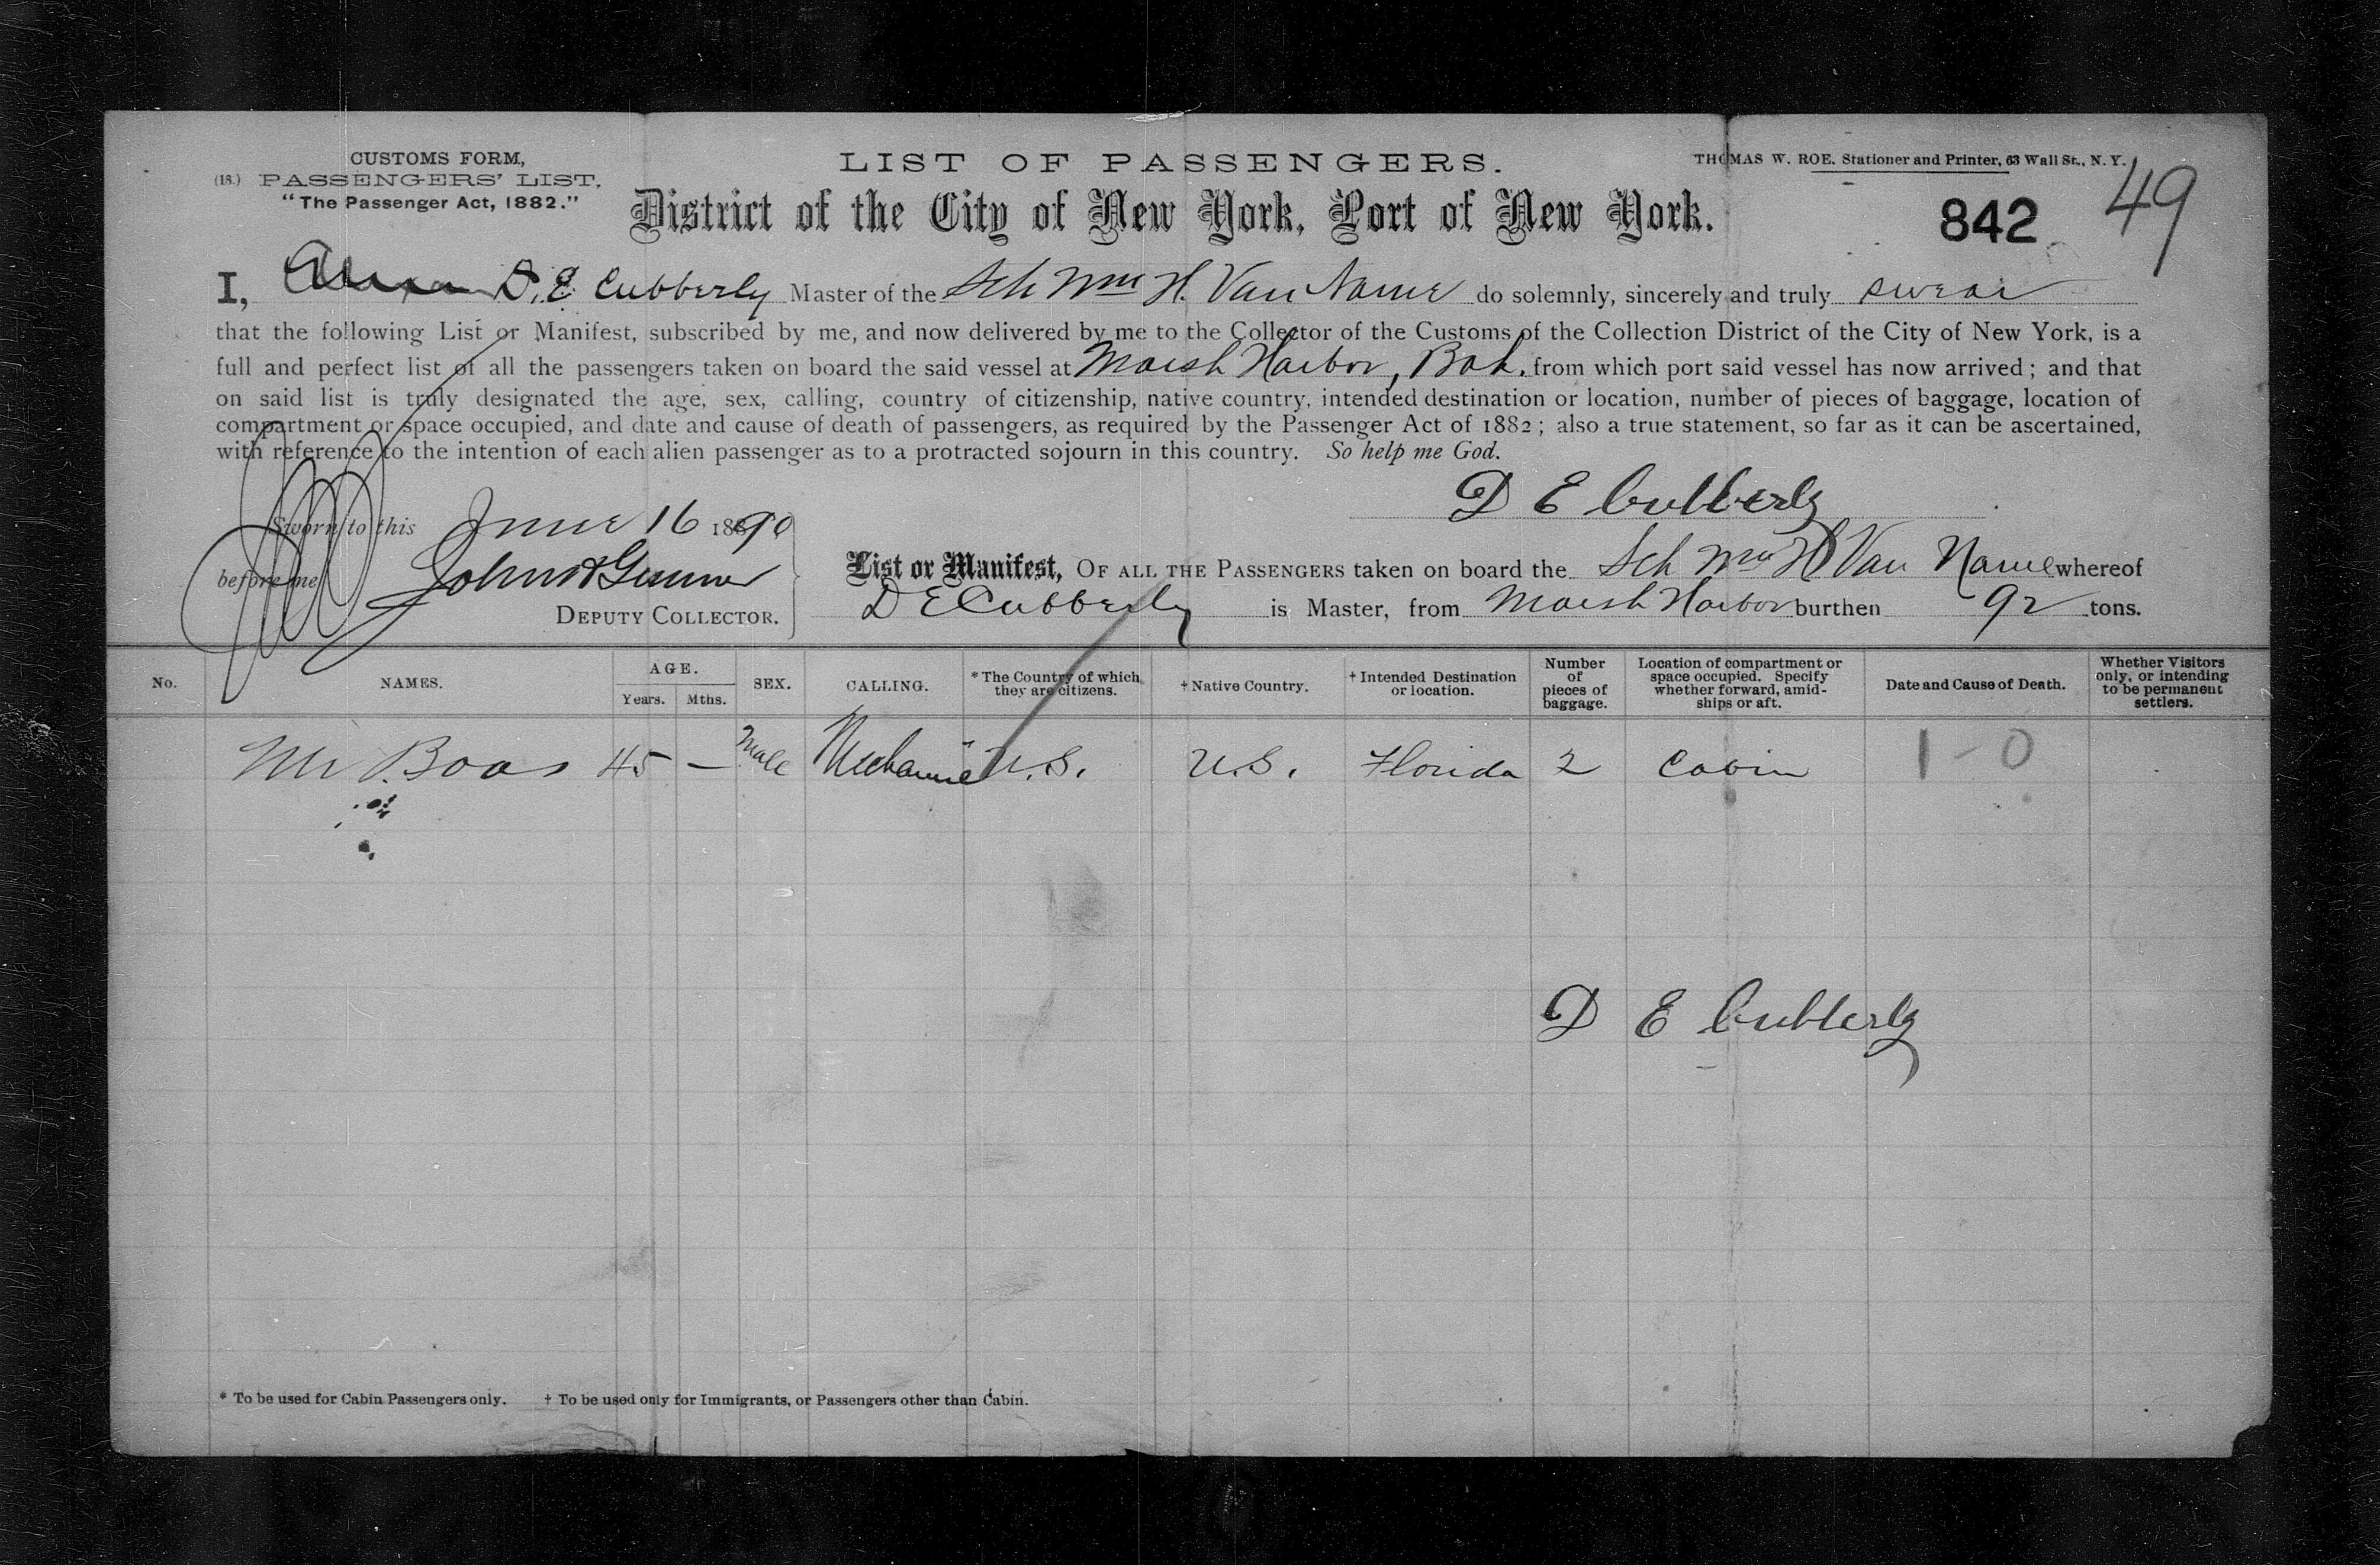 CUSTOMS FORM,
(18.) PASSENGERS' LIST,
"The Passenger Act, 1882."
LIST OF PASSENGERS.
District of the City of New York, Port of New York.
THOMAS W. ROE. Stationer and Printer, 63 Wall St., N. Y.
842
49
I, D. E. Cubberly Master of the Sch Wm H. Van Name do solemnly, sincerely and truly swear
that the following List or Manifest, subscribed by me, and now delivered by me to the Collector of the Customs of the Collection District of the City of New York, is a
full and perfect list of all the passengers taken on board the said vessel at Marsh Harbor, Bah. from which port said vessel has now arrived; and that
on said list is truly designated the age, sex, calling, country of citizenship, native country, intended destination or location, number of pieces of baggage, location of
compartment or space occupied, and date and cause of death of passengers, as required by the Passenger Act of 1882; also a true statement, so far as it can be ascertained,
with reference to the intention of each alien passenger as to a protracted sojourn in this country. So help me God.
D E Cubberly
Sworn to this June 16 1890
before me John
DEPUTY COLLECTOR.
List or Manifest, OF ALL THE PASSENGERS taken on board the Sch Wm H Van Name whereof
D E Cubberly is Master, from Marsh Harbor burthen 92 tons.
No. NAMES. AGE. Years. Mths. SEX. CALLING. * The Country of which they are citizens. † Native Country. † Intended Destination or location. Number of pieces of baggage. Location of compartment or space occupied. Specify whether forward, amidships or aft. Date and Cause of Death. Whether Visitors only, or intending to be permanent settlers.
Mr. Boas 45 — Male Mechanic U.S. U.S. Florida 2 Cabin 1 - 0
D E Cubberly
* To be used for Cabin Passengers only. † To be used only for Immigrants, or Passengers other than Cabin.